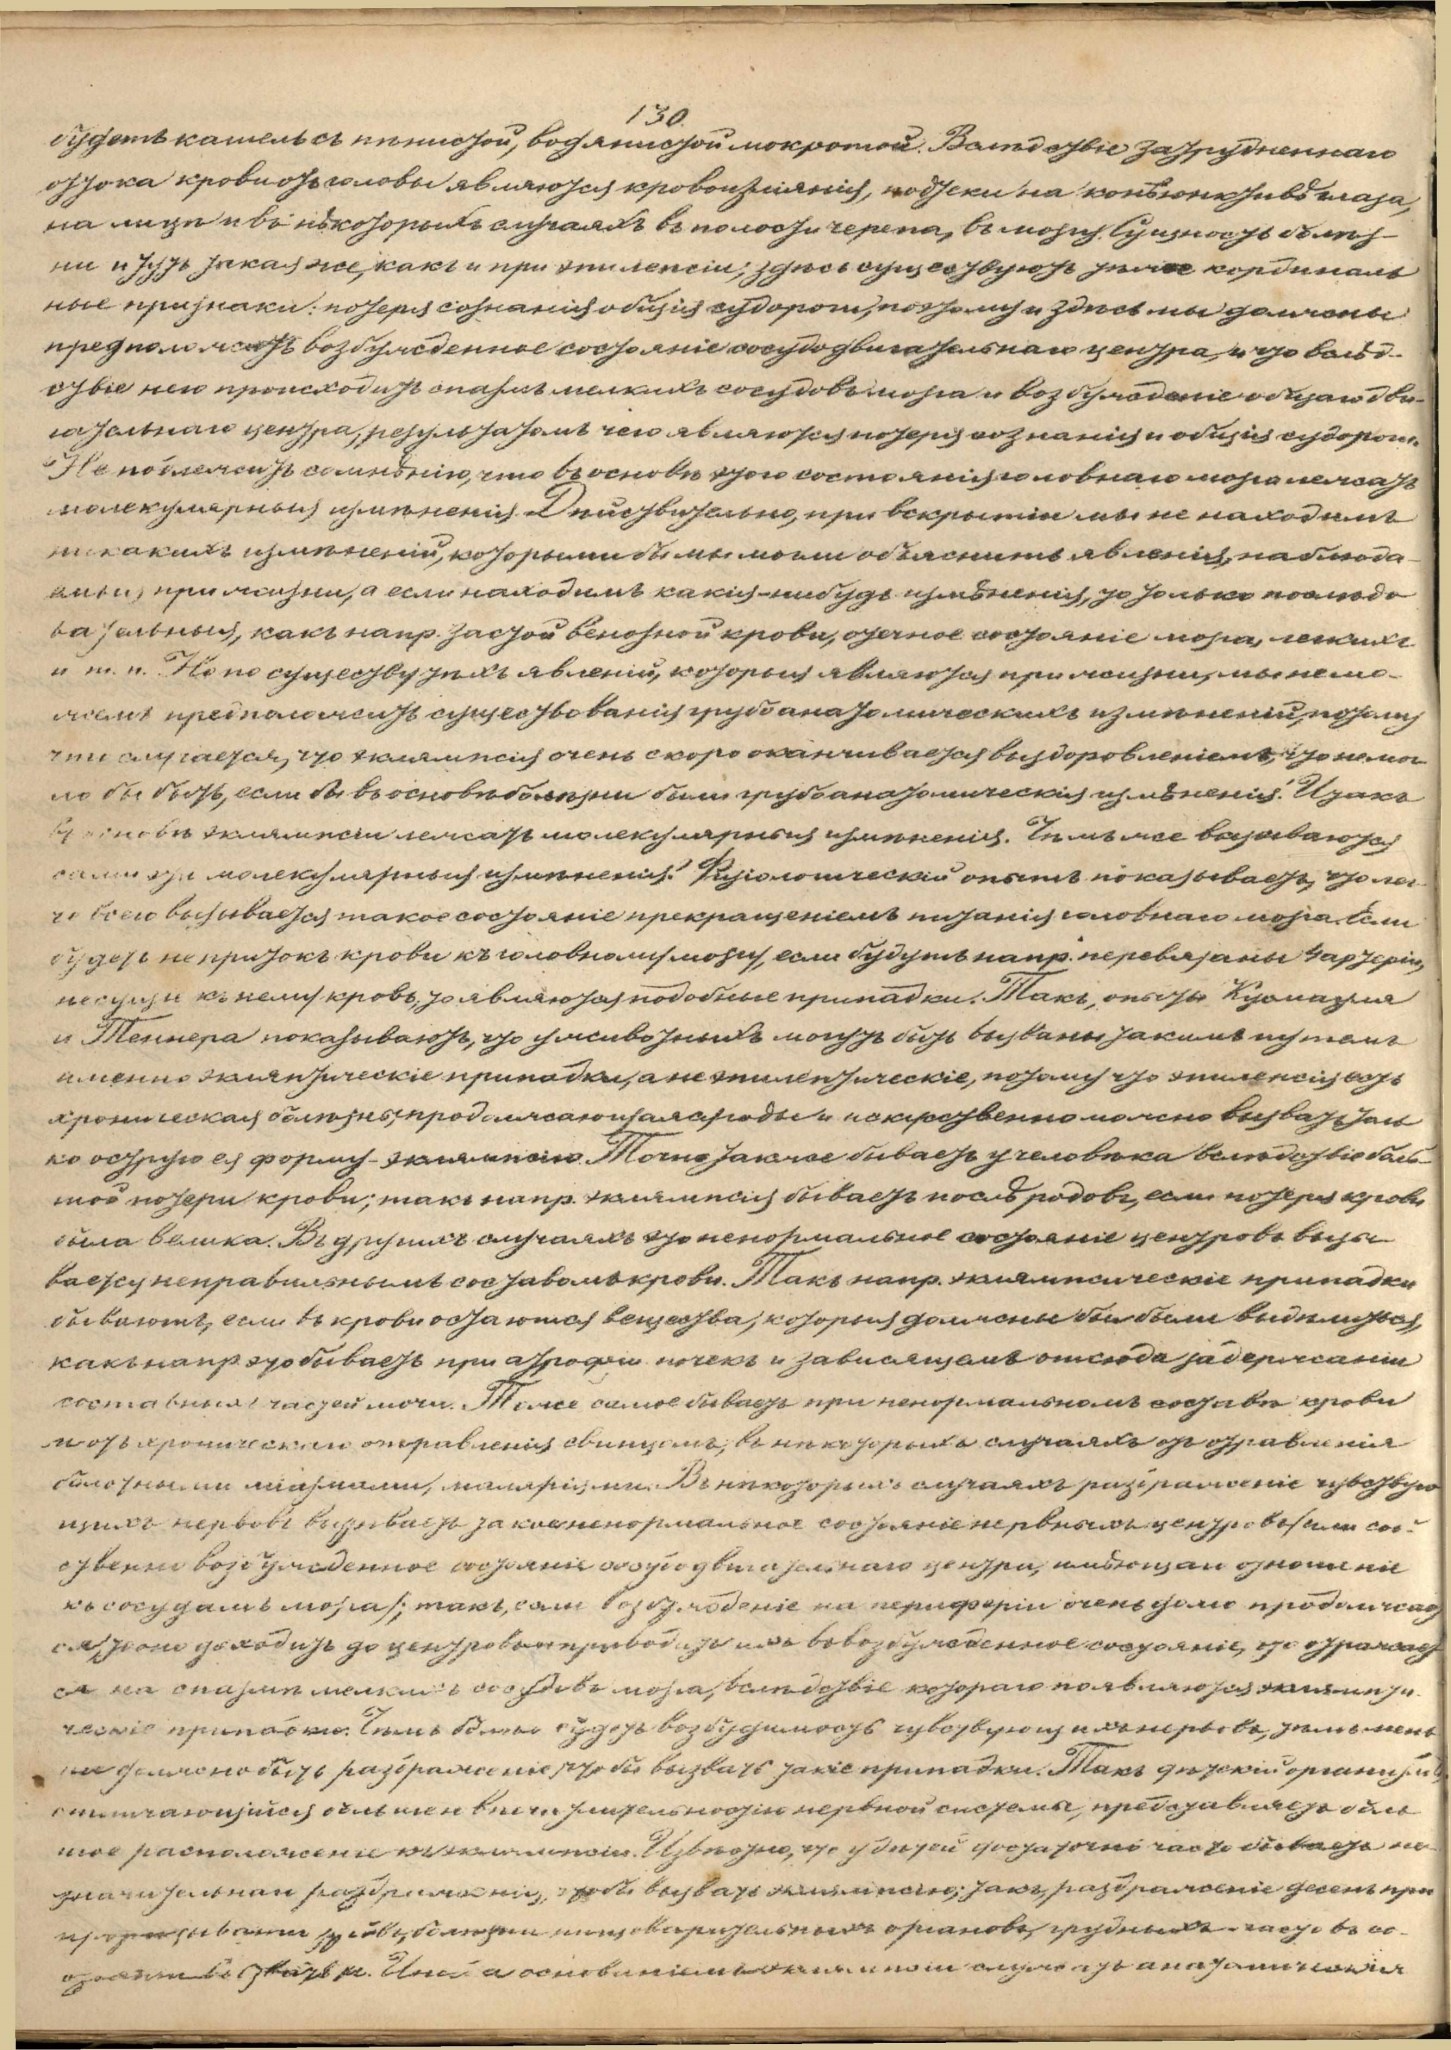 130.
будетъ кашель съ пѣнистой, водянистой мокротой. Вслѣдствіе затрудненнаго
оттока крови отъ головы являются кровоизліянія, подтеки на конъюнктивѣ глаза,
на лицѣ и въ нѣкоторыхъ случаяхъ въ полости черепа, въ мозгу. Сущность болѣз-
ни и тутъ такая же, какъ и при эпилепсіи; здѣсь существуютъ тѣ же кординаль
ные признаки: потеря сознанія общія судороги, поэтому и здѣсь мы должны
предположить возбужденное состояніе сосудодвигательнаго центра, и что вслѣд-
ствіе него происходитъ спазмъ мелкихъ сосудовъ мозга и возбужденіе общаго дви-
гательнаго центра, результатомъ чего являются потеря сознанія и общія судороги.
Не подлежитъ сомнѣнію, что въ основѣ этого состоянія головнаго мозга лежатъ
молекулярныя измѣненія. Дѣйствительно, при вскрытіи мы не находимъ
никакихъ измѣненій, которыми бы мы могли объяснить явленія, наблюда-
емыя при жизни, а если находимъ какія-нибудь измѣненія, то только послѣдо
вательныя, какъ напр. застой венозной крови, отечное состояніе мозга, легкихъ
и т. п. Но по существу тѣхъ явленій, которыя являются при жизни, мы не мо-
жемъ предположить существованія грубо анатомическихъ измѣненій, потому
что случается, что эклямпсія очень скоро оканчивается выздоровленіемъ, что не мог
ло бы быть, если бы въ основѣ болѣзни были грубо анатомическія измѣненія. Итакъ
въ основѣ эклямпсіи лежатъ молекулярныя измѣненія. Чѣмъ же вызываются
сами эти молекулярныя измѣненія? Физіологическій опытъ показываетъ, что лег-
че всего вызывается такое состояніе прекращеніемъ питанія головнаго мозга. Если
будетъ не притокъ крови къ головному мозгу, если будутъ напр. перевязаны 4 артеріи,
несущія къ нему кровь, то являются подобные припадки. Такъ, опыты Кусмауля
и Теннера показываютъ, что у животныхъ могутъ быть вызваны такимъ путемъ
именно эклямптическіе припадки, а не эпилептическіе, потому что эпилепсія есть
хроническая болѣзнь, продолжающаяся годы и искуственно можно вызвать толь
ко острую ея форму - эклямпсію. Точно также бываетъ у человѣка вслѣдствіе боль-
шой потери крови; такъ напр. эклямпсія бываетъ послѣ родовъ, если потеря крови
была велика. Въ другихъ случаяхъ это ненормальное состояніе центровъ вызы-
вается неправильнымъ составомъ крови. Такъ напр. эклямпсическіе припадки
бываютъ, если въ крови остаются вещества, которыя должны бы были выдѣлиться,
какъ напр. это бываетъ при атрофіи почекъ и зависящемъ отсюда задержаніи
составныхъ частей мочи. Тоже самое бываетъ при ненормальномъ составѣ крови
и отъ хроническаго отравленія свинцомъ, въ нѣкоторыхъ случаяхъ отъ отравленія
болотными міазмами, маляріями. Въ нѣкоторыхъ случаяхъ раздраженіе чувствую
щихъ нервовъ вызываетъ такое ненормальное состояніе нервныхъ центровъ (или соб-
ственно возбужденное состояніе сосудодвигательнаго центра, имѣющаго отношеніе
къ сосудамъ мозга); такъ, если возбужденіе на периферіи очень долго продолжает
ся, то оно доходитъ до центровъ и приводитъ ихъ въ возбужденное состояніе, что отражает
ся на спазмѣ мелкихъ сосудовъ мозга, вслѣдствіе котораго появляются эклямпти-
ческіе припадки. Чѣмъ больше будетъ возбудимость чувствующихъ нервовъ, тѣмъ мень
ше должно быть раздраженіе, чтобы вызвать такіе припадки. Такъ дѣтскій организмъ
отличающійся большей впечатлительностію нервной системы, представляетъ боль
шое расположеніе къ эклямпсіи. Извѣстно, что у дѣтей достаточно часто бываетъ не
значительнаго раздраженія, чтобы вызвать эклямпсію; такъ, раздраженіе десенъ при
прорѣзываніи зубовъ, болѣзни пищеварительныхъ органовъ, грудныхъ часто въ со-
стояніи вызвать ее. Иногда основаніемъ эклямпсіи служатъ анатомическія